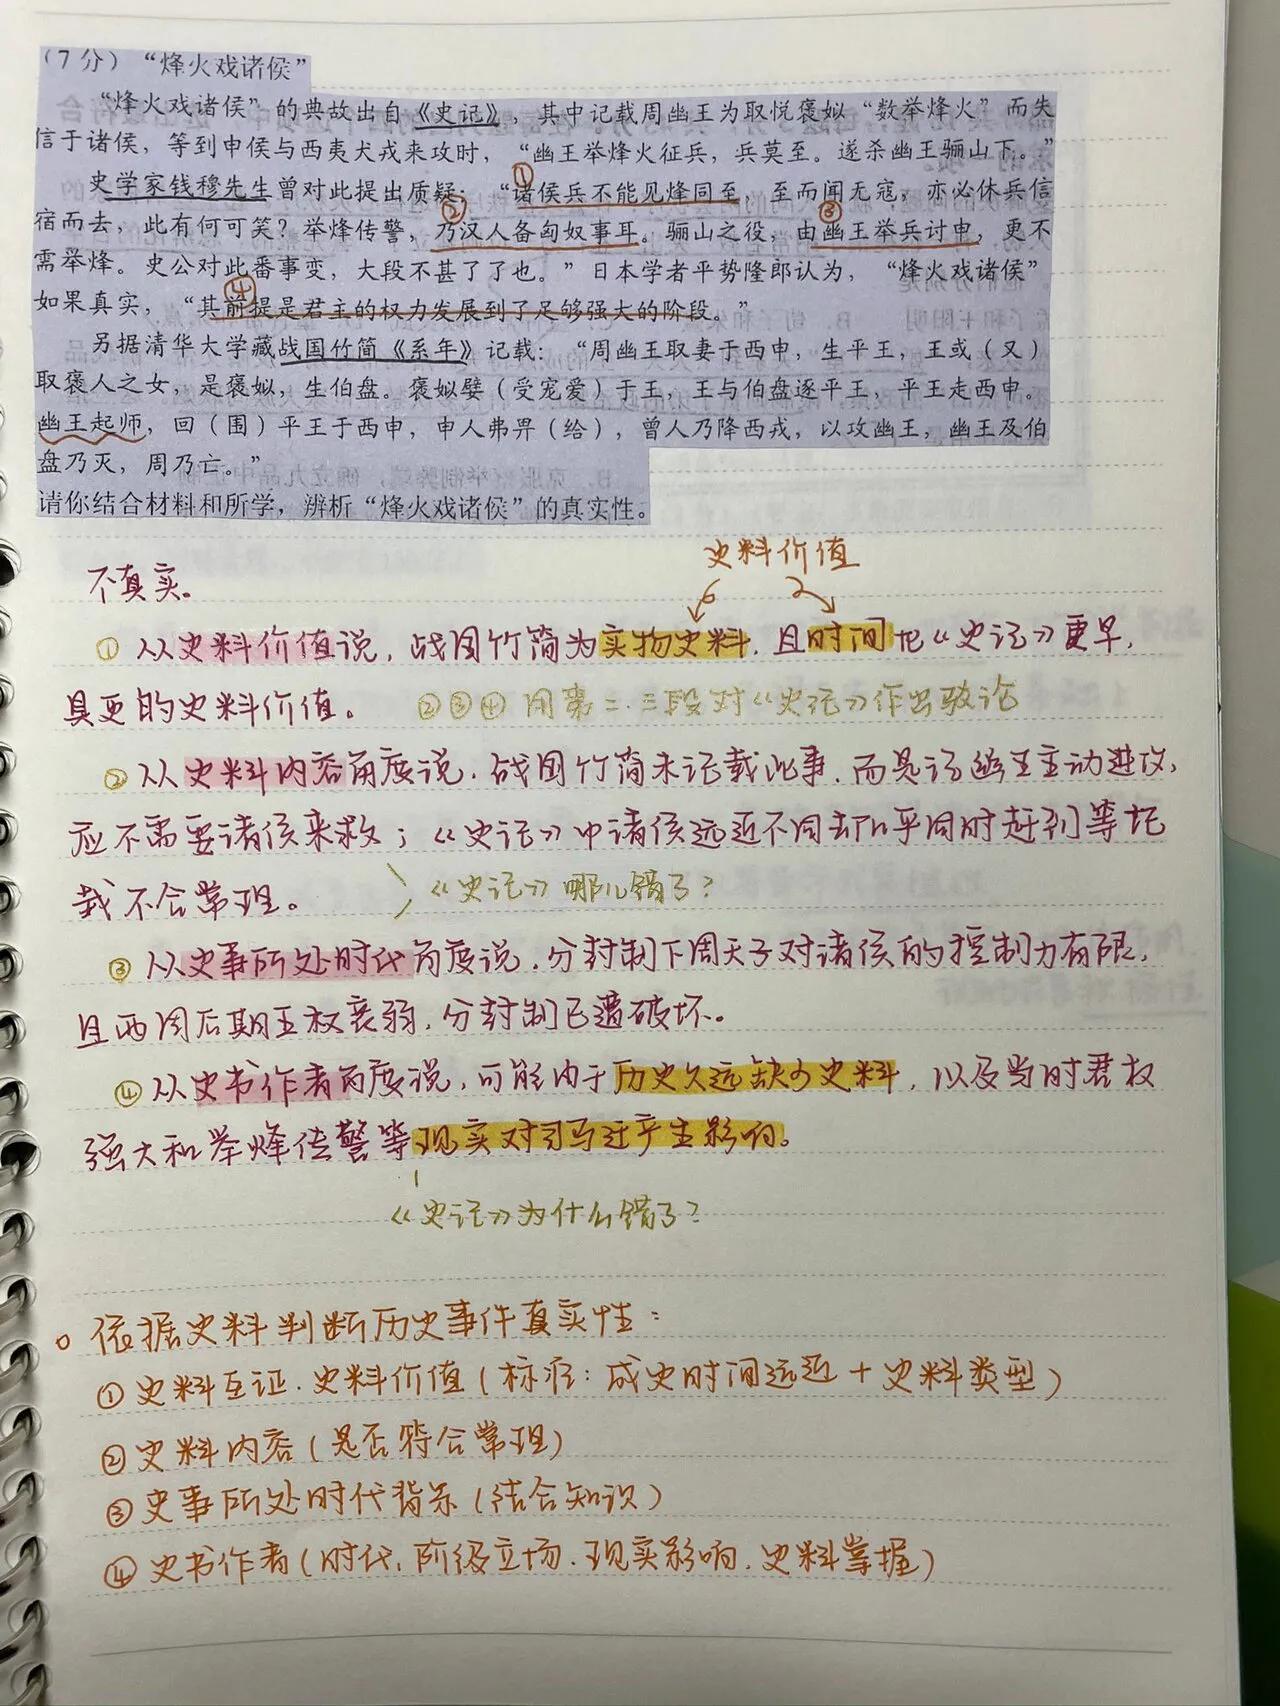 (7分)“烽火戏诸侯”
“烽火戏诸侯”的典故出自《史记》，其中记载周幽王为取悦褒姒“数举烽火”而失
信于诸侯，等到申侯与西夷犬戎来攻时，“幽王举烽火征兵，兵莫至。遂杀幽王骊山下。”
①
史学家钱穆先生曾对此提出质疑：“诸侯兵不能见烽同至，至而闻无寇，亦必休兵信
② ③
宿而去，此有何可笑？举烽传警，乃汉人备匈奴事耳。骊山之役，由幽王举兵讨申，更不
需举烽。史公对此番事变，大段不甚了了也。”日本学者平势隆郎认为，“烽火戏诸侯”
④
如果真实，“其前提是君主的权力发展到了足够强大的阶段。”
另据清华大学藏战国竹简《系年》记载：“周幽王取妻于西申，生平王，王或（又）
取褒人之女，是褒姒，生伯盘。褒姒嬖（受宠爱）于王，王与伯盘逐平王，平王走西申。
幽王起师，回（围）平王于西申，申人弗畀（给），曾人乃降西戎，以攻幽王，幽王及伯
盘乃灭，周乃亡。”
请你结合材料和所学，辨析“烽火戏诸侯”的真实性。
史料价值
不真实。
① 从史料价值说，战国竹简为实物史料，且时间比《史记》更早，
具更的史料价值。 ②③④用第二、三段对《史记》作出驳论
② 从史料内容角度说，战国竹简未记载此事，而是记幽王主动进攻，
应不需要诸侯来救；《史记》中诸侯远近不同却几乎同时赶到等记
载不合常理。 《史记》哪儿错了？
③ 从史事所处时代角度说，分封制下周天子对诸侯的控制力有限，
且西周后期王权衰弱，分封制已遭破坏。
④ 从史书作者角度说，可能由于历史久远缺少史料，以及当时君权
强大和举烽传警等现实对司马迁产生影响。
《史记》为什么错了？
○ 依据史料判断历史事件真实性：
① 史料互证、史料价值（标准：成史时间远近＋史料类型）
② 史料内容（是否符合常理）
③ 史事所处时代背景（结合知识）
④ 史书作者（时代、阶级立场、现实影响、史料掌握）